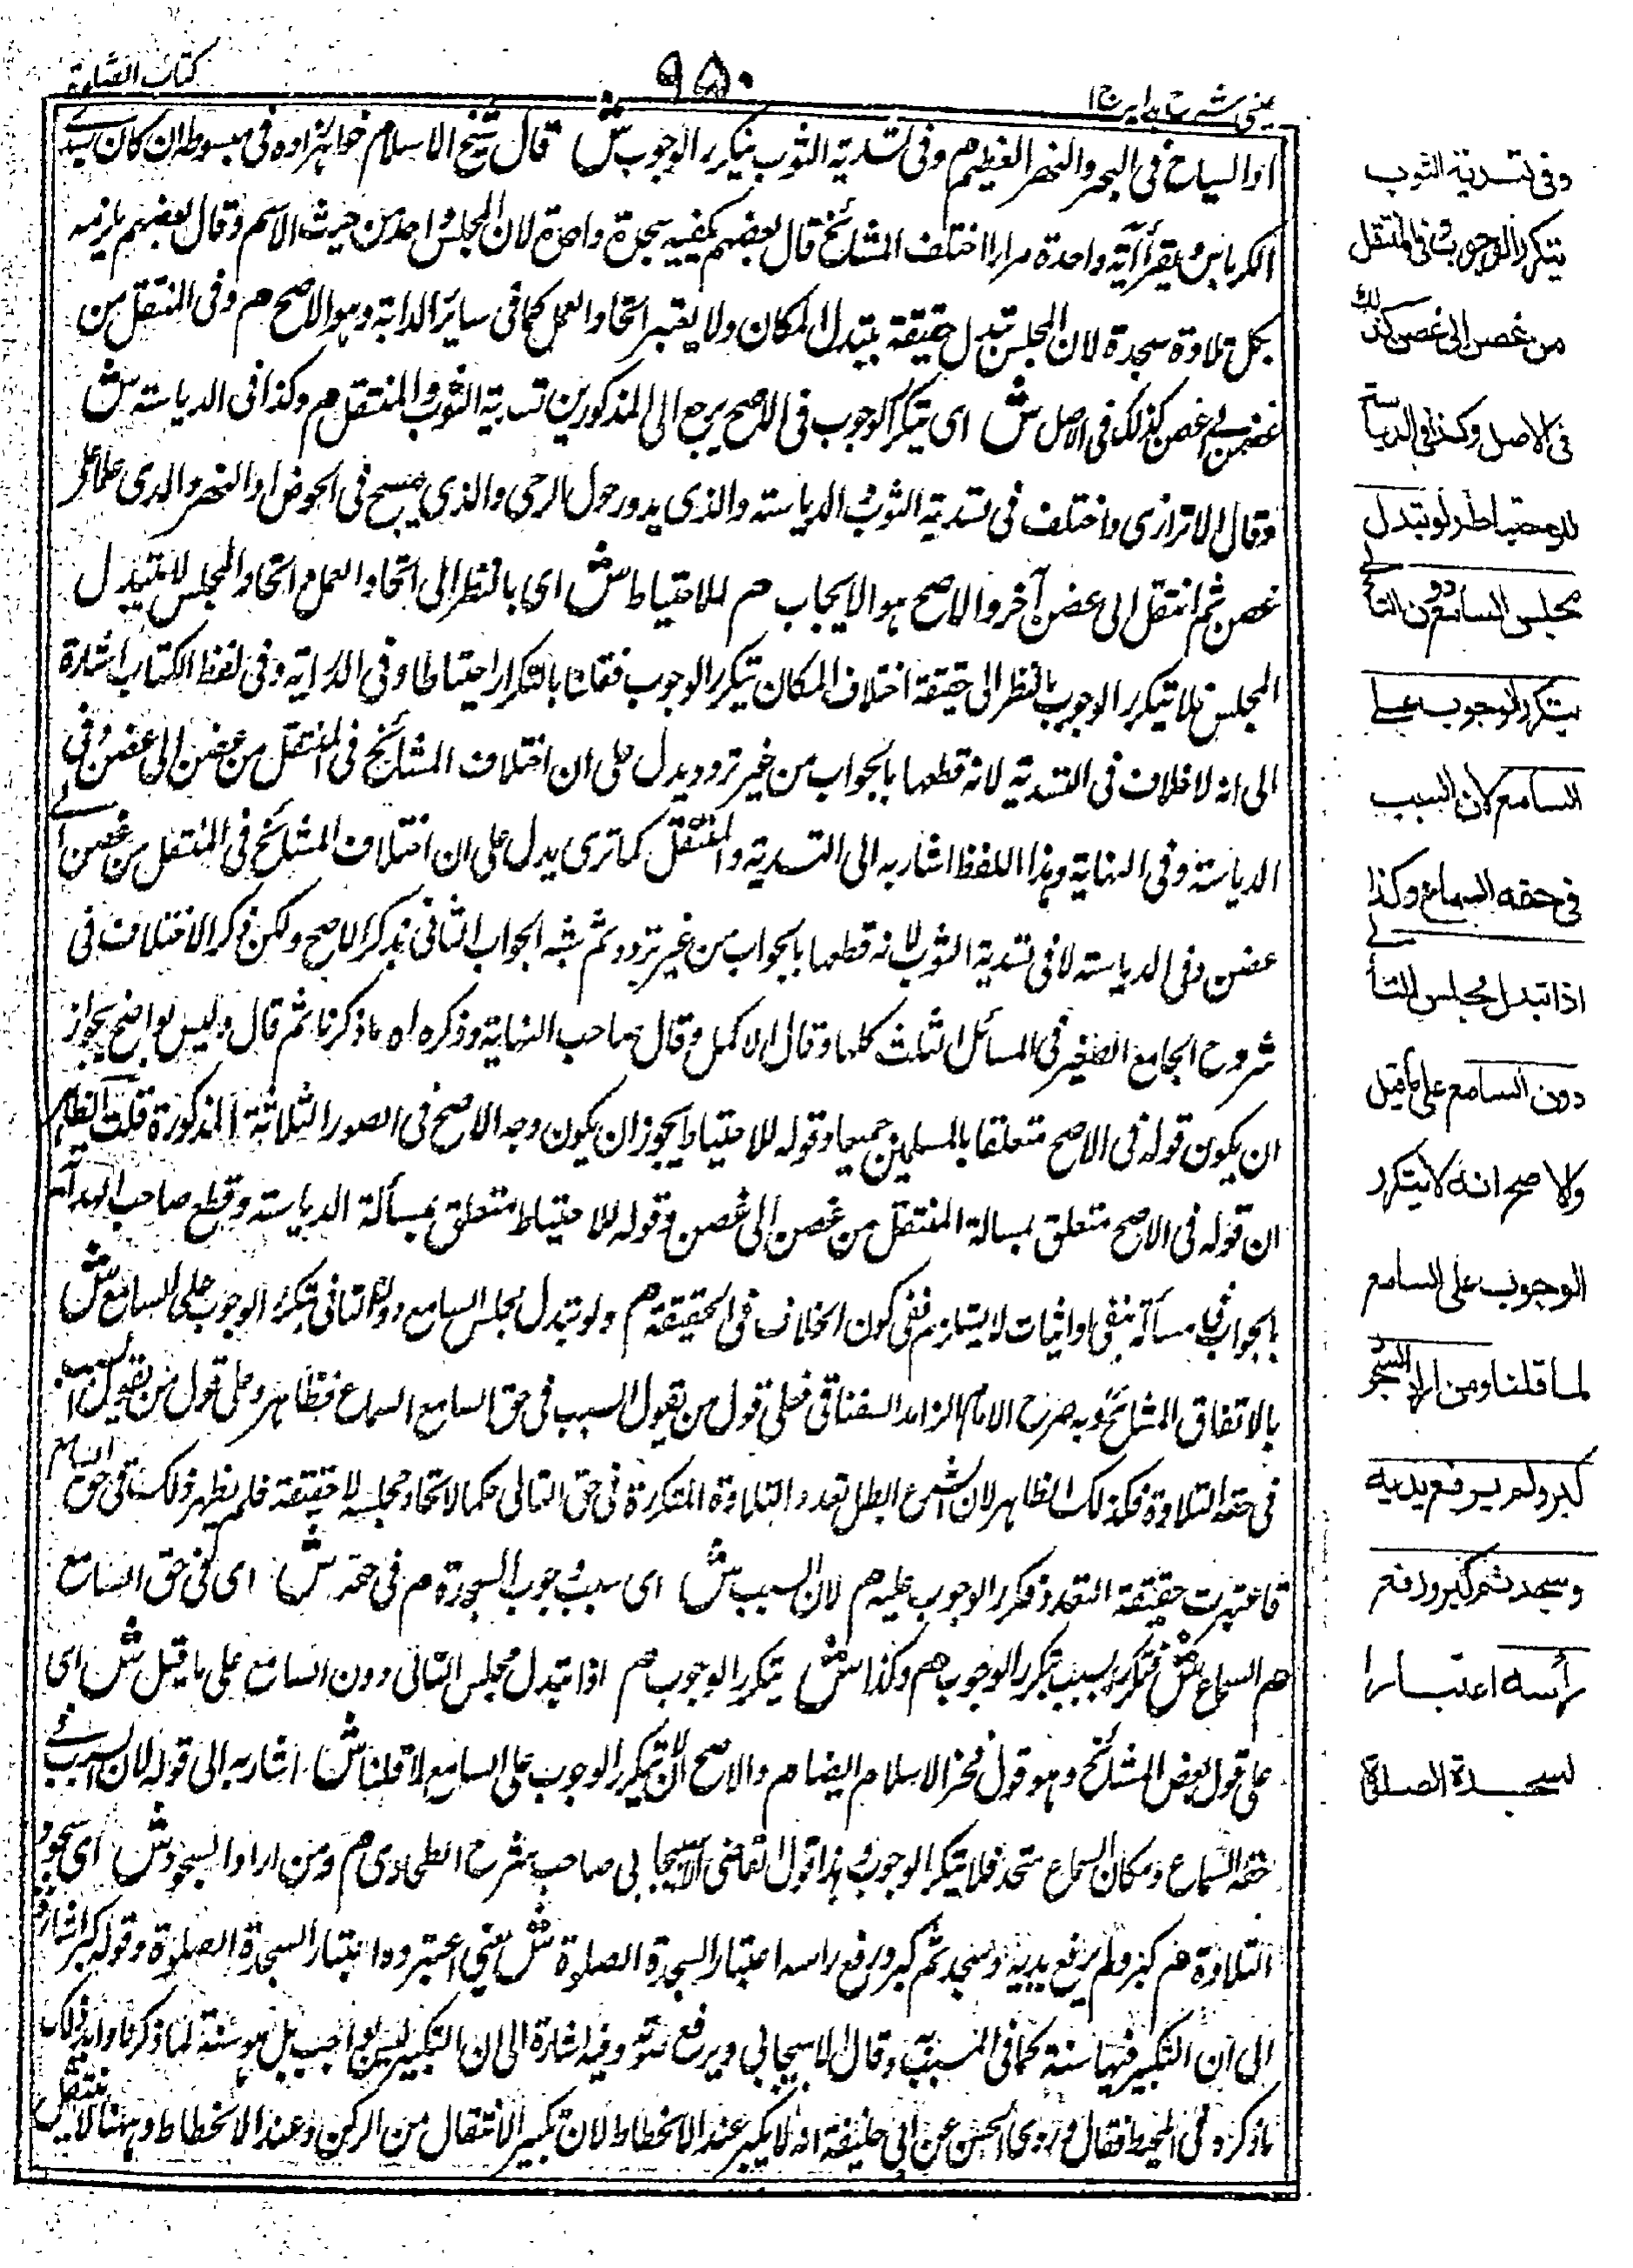 عینی شرح ہدایہ ج ۱
۹۵۰
کتاب الصلوة
او السیاح فی البحر والنهر العظیم م وفی تسدیة الثوب یتکرر الوجوب ش قال شیخ الاسلام خواہر زادہ فی مبسوطه ان کان یسدی
الکرباس ویقرأ آیة واحدة مرارا اختلف المشائخ قال بعضہم یکفیه سجدة واحدة لان المجلس واحد من حیث الاسم وقال بعضہم یلزمه
بکل تلاوة سجدة لان المجلس تبدل حقیقة بتبدل المکان ولا یعتبر اتحاد العمل کما فی سائر الدابة وہو الاصح م وفی المنتقل من
غصن الی غصن کذلک فی الاصل ش ای یتکرر الوجوب فی الاصح یرجع الی المذکورین تسدیة الثوب والمنتقل م وکذا فی الدیاسة ش
وقال الاترازی واختلف فی تسدیة الثوب والدیاسة والذی یدور حول الرحی والذی یسبح فی الحوض او النهر والذی علی
غصن ثم انتقل الی غصن آخر والاصح ہو الایجاب م للاحتیاط ش ای بالنظر الی اتحاد العمل اتحاد المجلس لا یتبدل
المجلس فلا یتکرر الوجوب بالنظر الی حقیقة اختلاف المکان یتکرر الوجوب فقلنا بالتکرار احتیاطا وفی الدرایة وفی لفظ الکتاب اشارة
الی انه لا خلاف فی التسدیة لانه قطعها بالجواب من غیر تردد یدل علی ان اختلاف المشائخ فی المنتقل من غصن الی غصن وفی
الدیاسة وفی النهایة وہذا اللفظ اشار به الی التسدیة والمنتقل کما تری یدل علی ان اختلاف المشائخ فی المنتقل من غصن الی
غصن وفی الدیاسة لا فی تسدیة الثوب لانه قطعها بالجواب من غیر تردد ثم شبه الجواب الثانی بذکر الاصح ولکن ذکر الاختلاف فی
شروح الجامع الصغیر فی المسائل الثلث کلها وقال الاکمل وقال صاحب النهایة وذکره اه ما ذکرنا ثم قال ولیس بواضح یجواز
ان یکون قوله فی الاصح متعلقا بالمسلمین جمیعا وقوله للاحتیاط یجوز ان یکون وجه الاصح فی الصور الثلاثة المذکورة قلت الظاہر
ان قوله فی الاصح متعلق بمسالة المنتقل من غصن الی غصن وقوله للاحتیاط متعلق بمسألة الدیاسة وقطع صاحب الہدایة
بالجواب فی مسألة بنفی او اثبات لا یستلزم نفی کون الخلاف فی الحقیقة م ولو تبدل مجلس السامع دون التالی یتکرر الوجوب علی السامع ش
بالاتفاق المشائخ وبه صرح الامام الزاہد السغناقی فعلی قول من یقول السبب فی حق السامع السماع فظاہر وعلی قول من یقول السبب
فی حقه التلاوة فکذلک الظاہر لان الشرع ابطل تعدد التلاوة المتکررة فی حق التالی حکما لاتحاد مجلسه لا حقیقة فلم یظہر ذلک فی حق السامع
فاعتبرت حقیقة التعدد فتکرر الوجوب علیه م لان السبب ش ای سبب وجوب السجدة م فی حقه ش ای فی حق السامع
م السماع ش فتکرر السبب تکرر الوجوب م وکذا ش یتکرر الوجوب م اذا تبدل مجلس التالی دون السامع علی ما قیل ش ای
علی قول بعض المشائخ وہو قول فخر الاسلام ایضا م والاصح ان لا یتکرر الوجوب علی السامع لما قلنا ش اشار به الی قوله لان السبب فی
حقه السماع ومکان السماع متحد فلا یتکرر الوجوب وہذا قول القاضی الاسبیجابی صاحب شرح الطحاوی م ومن اراد السجود ش ای سجود
التلاوة م کبر ولم یرفع یدیه وسجد ثم کبر ورفع راسه اعتبارا لسجدة الصلوة ش یعنی اعتبروہا اعتبارا لسجدة الصلوة وقوله کبر اشارة
الی ان التکبیر فیها سنة کما فی وقال الاسبیجابی ویرفع صوته وفیه اشارة الی ان التکبیر لیس بواجب بل ہو سنة لما ذکرنا وایده ذلک
ما ذکره فی المحیط فقال وروی الحسن عن ابی حنیفة انه لا یکبر عند الانحطاط لان تکبیر الانتقال من الرکن وعند الانحطاط وہہنا لا ینتقل
وفی تسدیة الثوب
یتکرر الوجوب وفی المنتقل
من غصن الی غصن کذلک
فی الاصل وکذا فی الدیاسة
للاحتیاط ولو تبدل
مجلس السامع دون التالی
یتکرر الوجوب علی
السامع لان السبب
فی حقه السماع وکذا
اذا تبدل مجلس التالی
دون السامع علی ما قیل
والاصح انه لا یتکرر
الوجوب علی السامع
لما قلنا ومن اراد السجود
کبر ولم یرفع یدیه
وسجد ثم کبر ورفع
رأسه اعتبارا
لسجدة الصلاة